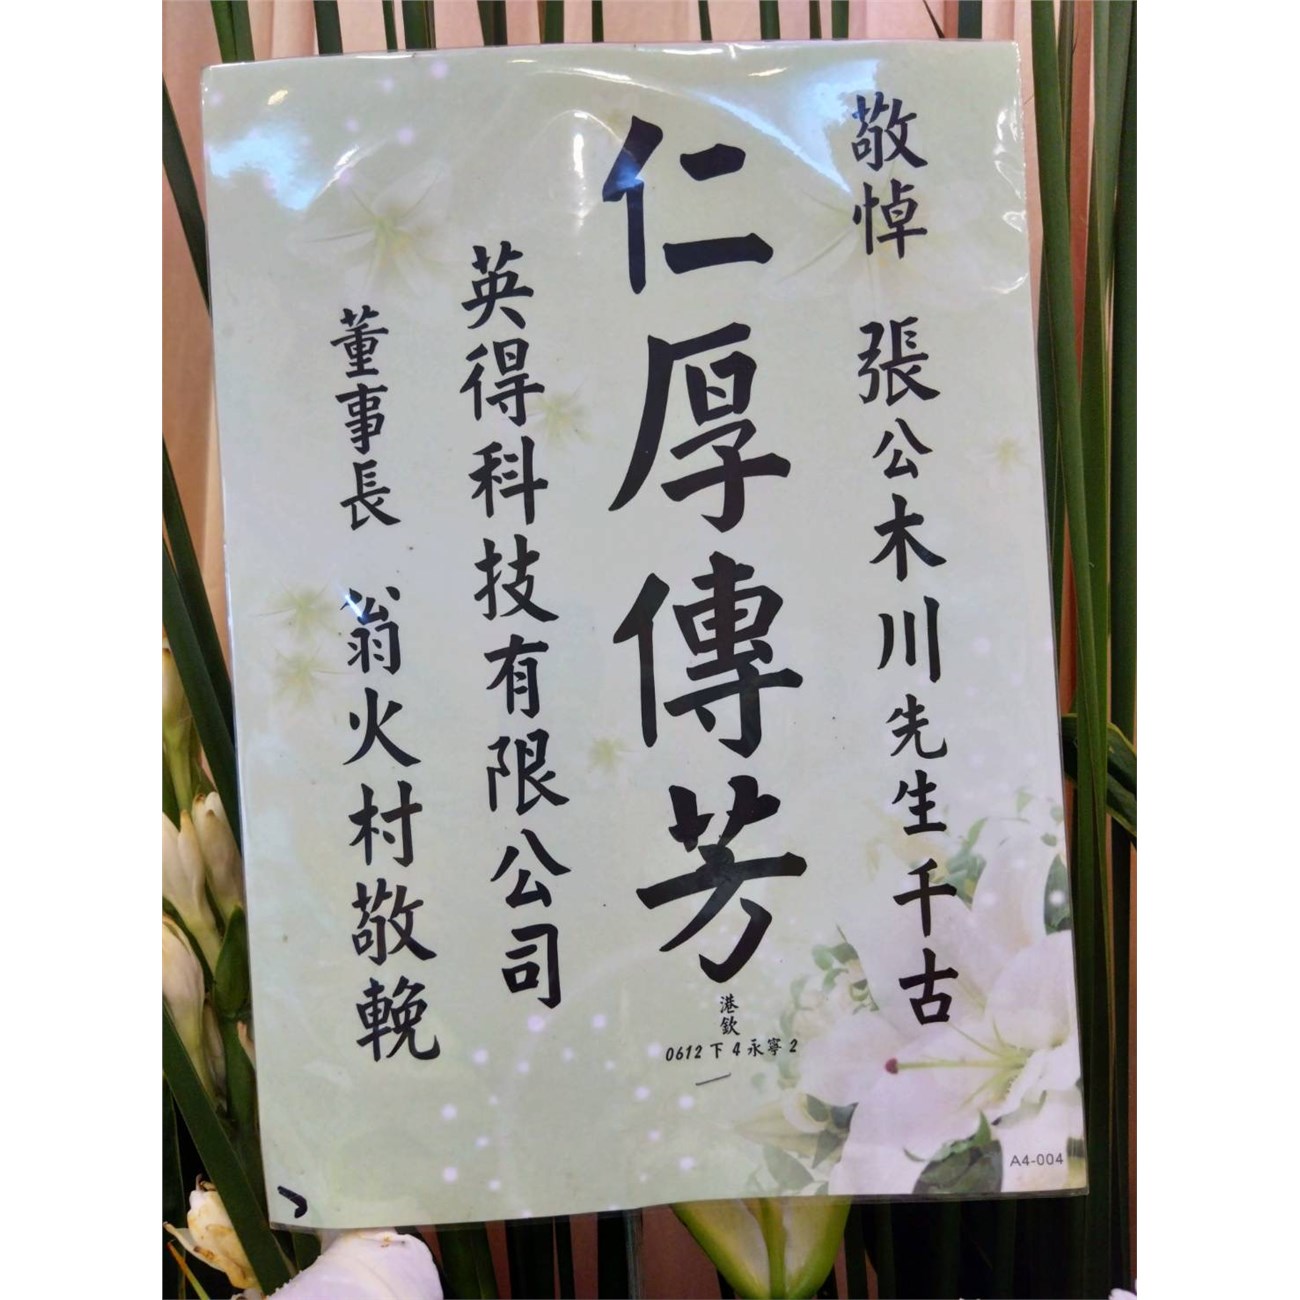 敬悼 張公木川先生千古
仁厚傳芳
英得科技有限公司
董事長 翁火村敬輓
港欽
0612下4永寧2
A4-004